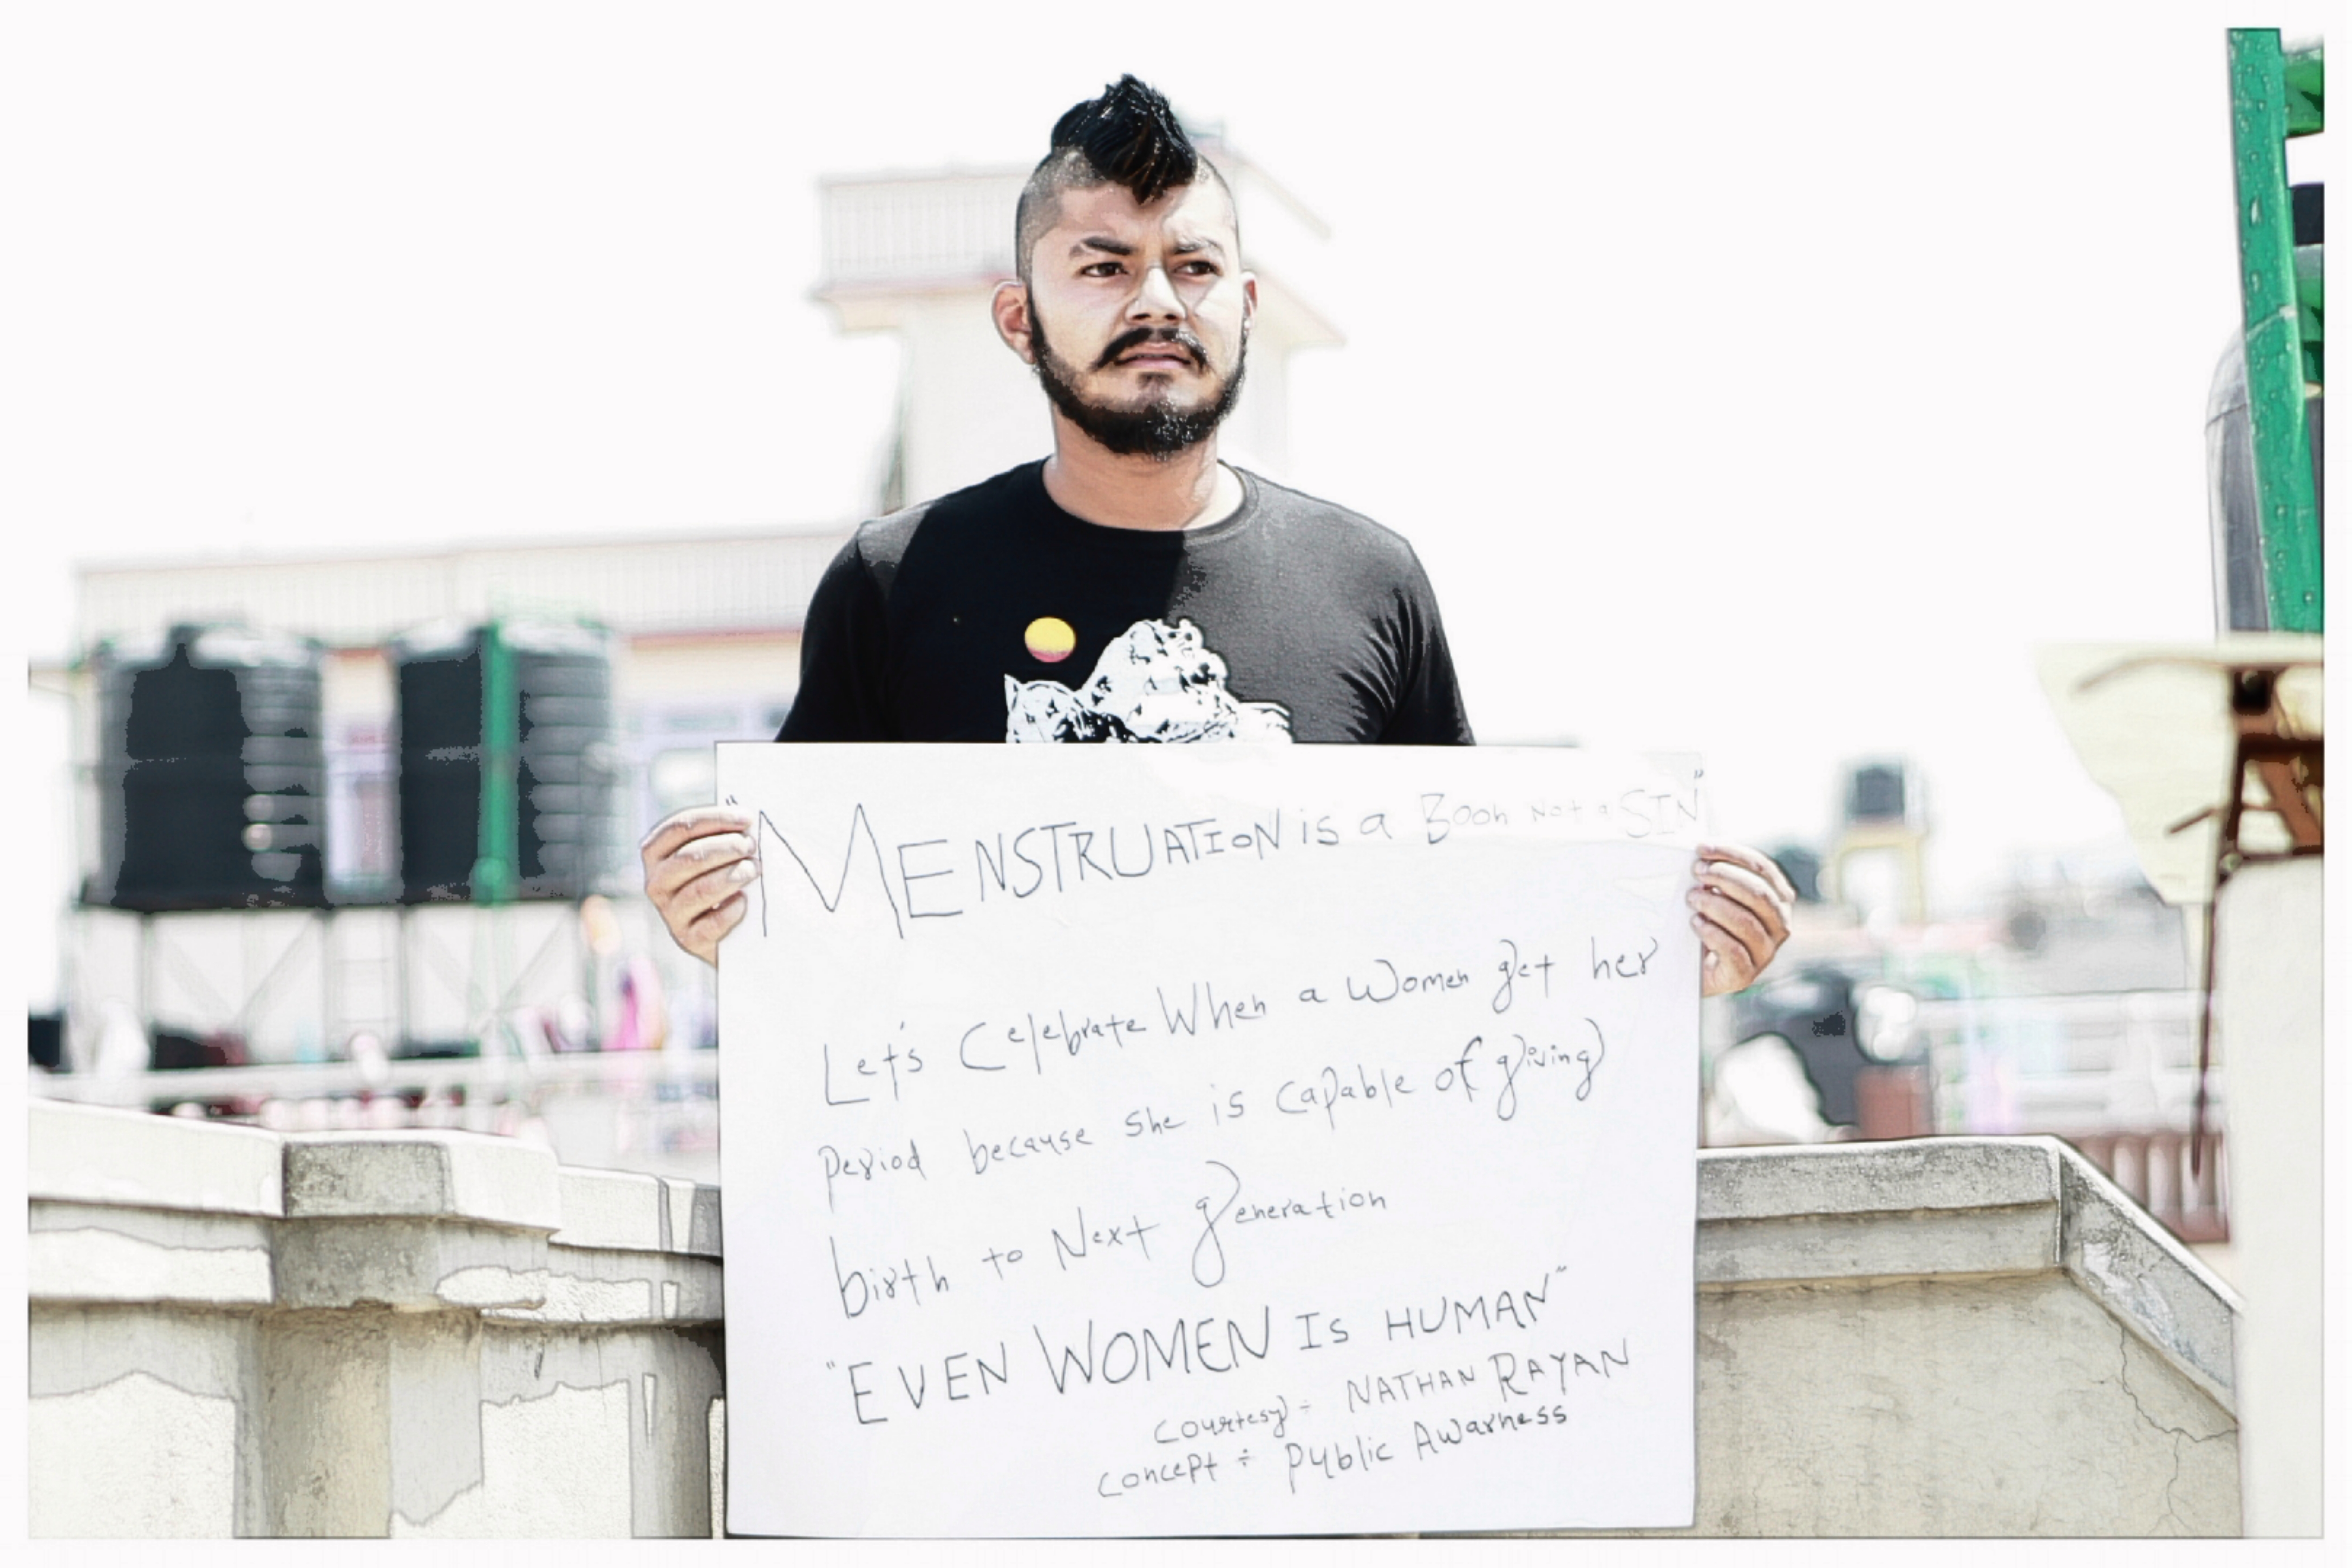 "MENSTRUATION is a Boon Not a SIN"
Let's Celebrate When a Women get her
period because she is capable of giving
birth to Next generation
"EVEN WOMEN IS HUMAN"
Courtesy÷ NATHAN RAYAN
Concept ÷ Public Awarness